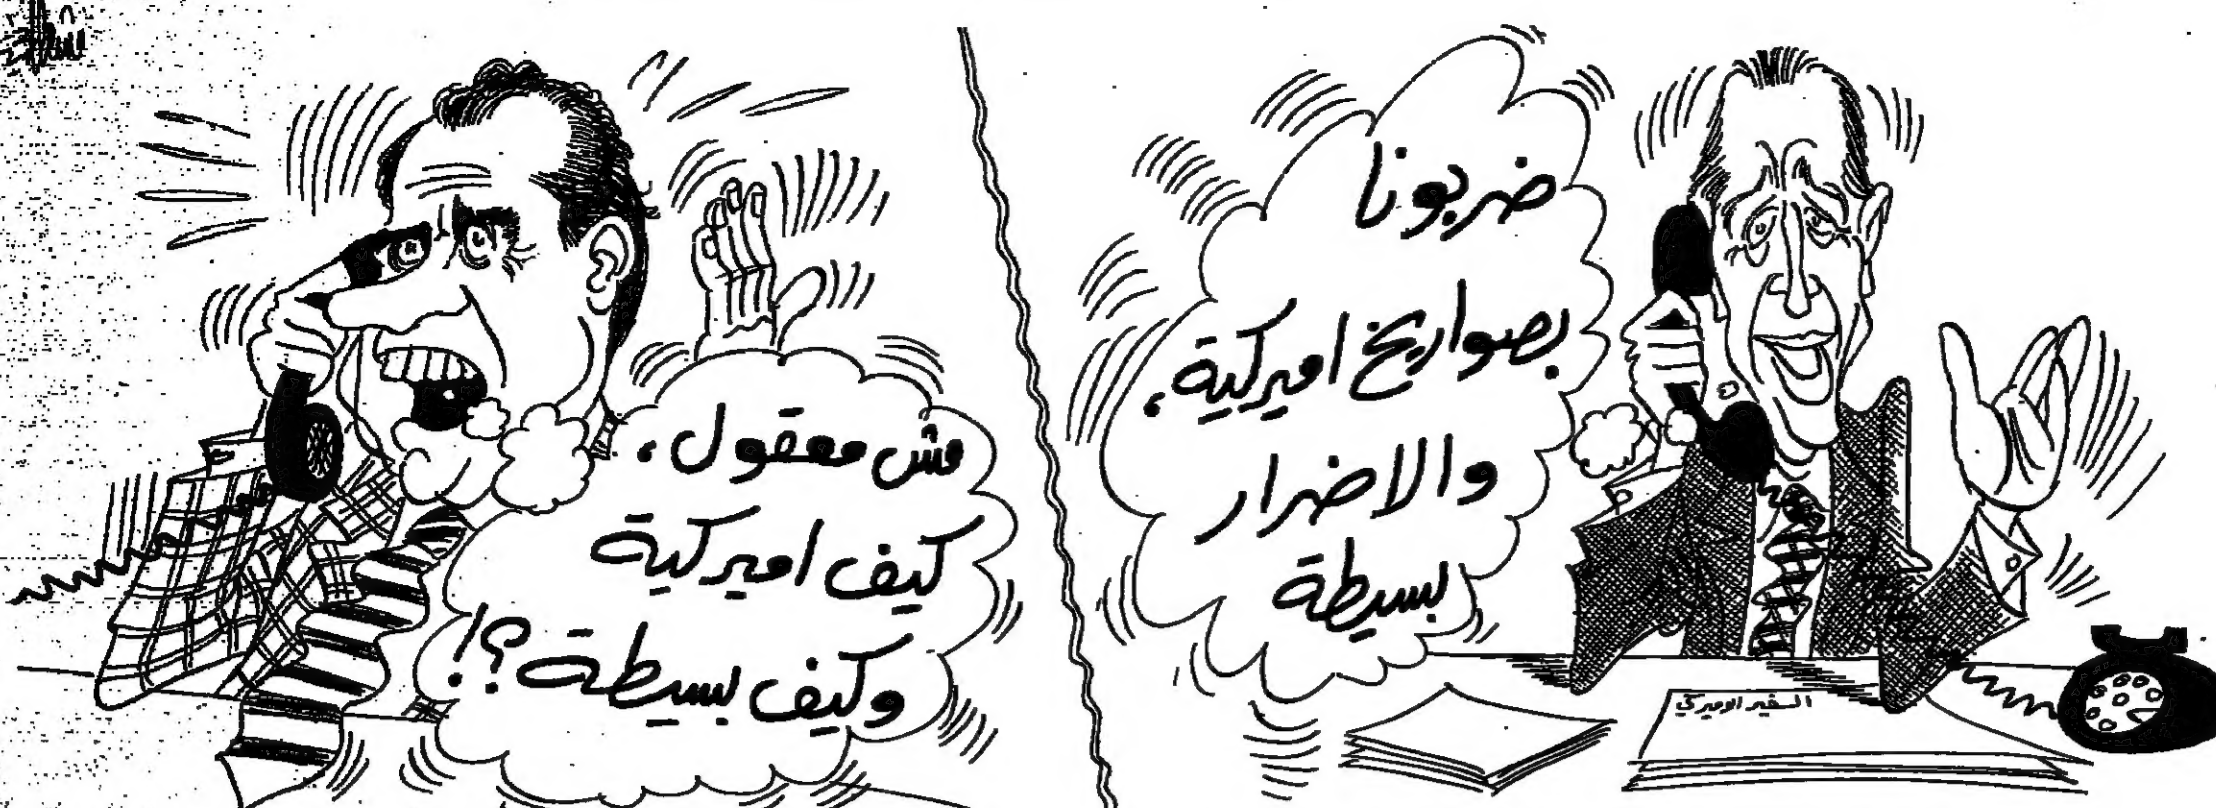 ضربونا
بصواريخ اميركية،
والاضرار
بسيطة
السفير الاميركي
مش معقول،
كيف اميركية
وكيف بسيطة؟!